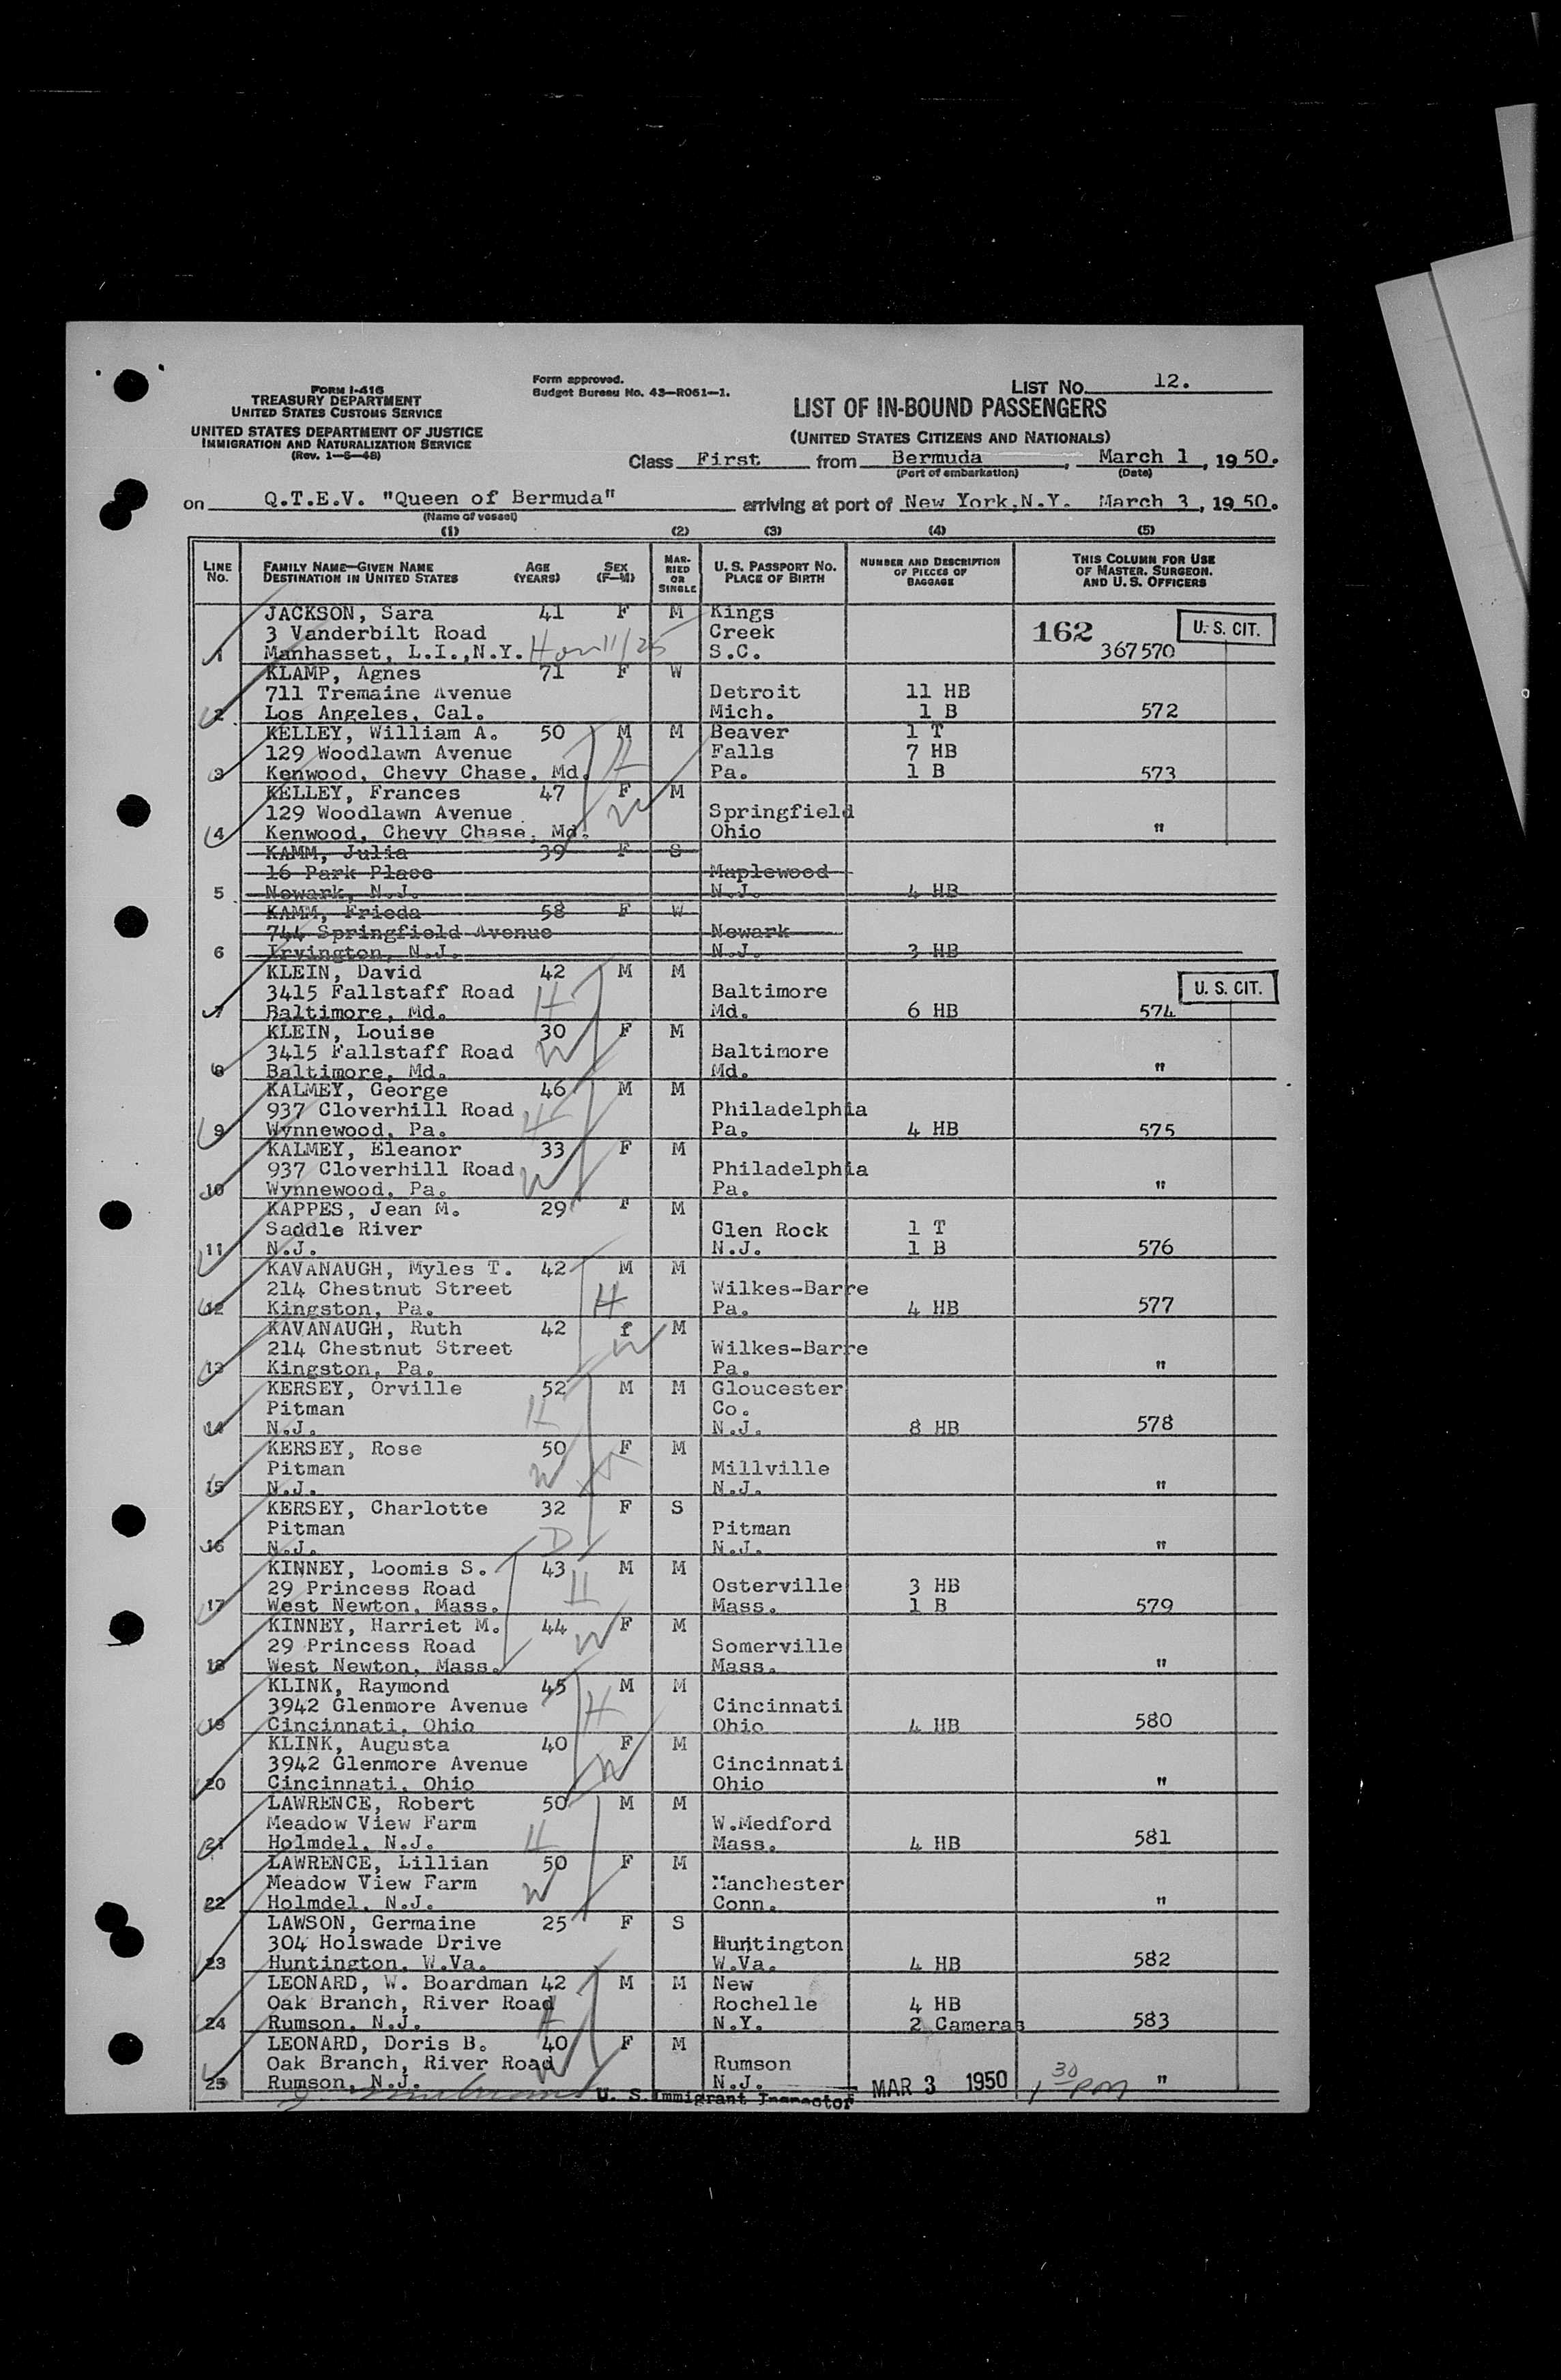 FORM I-416
TREASURY DEPARTMENT
UNITED STATES CUSTOMS SERVICE
UNITED STATES DEPARTMENT OF JUSTICE
IMMIGRATION AND NATURALIZATION SERVICE
(Rev. 1-6-48)
Form approved.
Budget Bureau No. 43-R061-1.
LIST NO. 12.
LIST OF IN-BOUND PASSENGERS
(UNITED STATES CITIZENS AND NATIONALS)
Class First from Bermuda, March 1, 1950.
(Port of embarkation) (Date)
on Q.T.E.V. "Queen of Bermuda" arriving at port of New York,N.Y. March 3, 1950.
(Name of vessel)
(1) (2) (3) (4) (5)
LINE NO. FAMILY NAME—GIVEN NAME DESTINATION IN UNITED STATES AGE (YEARS) SEX (F-M) MARRIED OR SINGLE U. S. PASSPORT NO. PLACE OF BIRTH NUMBER AND DESCRIPTION OF PIECES OF BAGGAGE THIS COLUMN FOR USE OF MASTER. SURGEON. AND U. S. OFFICERS
JACKSON, Sara 41 F M Kings
3 Vanderbilt Road Creek 162 U. S. CIT.
1 Manhasset, L.I.,N.Y. 11/25 S.C. 367570
KLAMP, Agnes 71 F W
711 Tremaine Avenue Detroit 11 HB
2 Los Angeles, Cal. Mich. 1 B 572
KELLEY, William A. 50 M M Beaver 1 T
129 Woodlawn Avenue H Falls 7 HB
3 Kenwood, Chevy Chase, Md. Pa. 1 B 573
KELLEY, Frances 47 F M
129 Woodlawn Avenue W Springfield
4 Kenwood, Chevy Chase, Md. Ohio "
KAMM, Julia 39 F S
16 Park Place Maplewood
5 Newark, N.J. N.J. 4 HB
KAMM, Frieda 58 F W
744 Springfield Avenue Newark
6 Irvington, N.J. N.J. 3 HB
KLEIN, David 42 M M
3415 Fallstaff Road H Baltimore U. S. CIT.
7 Baltimore, Md. Md. 6 HB 574
KLEIN, Louise 30 F M
3415 Fallstaff Road W Baltimore
8 Baltimore, Md. Md. "
KALMEY, George 46 M M
937 Cloverhill Road H Philadelphia
9 Wynnewood, Pa. Pa. 4 HB 575
KALMEY, Eleanor 33 F M
937 Cloverhill Road W Philadelphia
10 Wynnewood, Pa. Pa. "
KAPPES, Jean M. 29 F M
Saddle River Glen Rock 1 T
11 N.J. N.J. 1 B 576
KAVANAUGH, Myles T. 42 M M
214 Chestnut Street H Wilkes-Barre
12 Kingston, Pa. Pa. 4 HB 577
KAVANAUGH, Ruth 42 f M
214 Chestnut Street W Wilkes-Barre
13 Kingston, Pa. Pa. "
KERSEY, Orville 52 M M Gloucester
Pitman H Co.
14 N.J. N.J. 8 HB 578
KERSEY, Rose 50 F M
Pitman W Millville
15 N.J. N.J. "
KERSEY, Charlotte 32 F S
Pitman D Pitman
16 N.J. N.J. "
KINNEY, Loomis S. 43 M M
29 Princess Road H Osterville 3 HB
17 West Newton, Mass. Mass. 1 B 579
KINNEY, Harriet M. 44 F M
29 Princess Road W Somerville
18 West Newton, Mass. Mass. "
KLINK, Raymond 45 M M
3942 Glenmore Avenue H Cincinnati
19 Cincinnati, Ohio Ohio 4 HB 580
KLINK, Augusta 40 F M
3942 Glenmore Avenue W Cincinnati
20 Cincinnati, Ohio Ohio "
LAWRENCE, Robert 50 M M
Meadow View Farm H W.Medford
21 Holmdel, N.J. Mass. 4 HB 581
LAWRENCE, Lillian 50 F M
Meadow View Farm W Manchester
22 Holmdel, N.J. Conn. "
LAWSON, Germaine 25 F S
304 Holswade Drive Huntington
23 Huntington, W.Va. W.Va. 4 HB 582
LEONARD, W. Boardman 42 M M New
Oak Branch, River Road H Rochelle 4 HB
24 Rumson, N.J. N.Y. 2 Cameras 583
LEONARD, Doris B. 40 F M
Oak Branch, River Road W Rumson
25 Rumson, N.J. N.J. MAR 3 1950 1 30 PM "
U. S. Immigrant Inspector